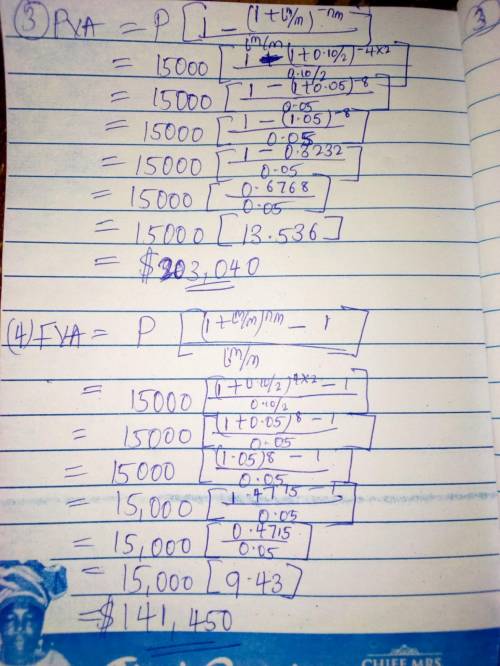 (3) PVA = P [1 - (1 + im/m)^-nm / im/m] (3)
= 15000 [1 - (1 + 0.10/2)^-4x2 / 0.10/2]
= 15000 [1 - (1 + 0.05)^-8 / 0.05]
= 15000 [1 - (1.05)^-8 / 0.05]
= 15000 [1 - 0.3232 / 0.05]
= 15000 [0.6768 / 0.05]
= 15000 [13.536]
= $203,040
(4) FVA = P [(1 + im/m)^nm - 1 / im/m]
= 15000 [(1 + 0.10/2)^4x2 - 1 / 0.10/2]
= 15000 [(1 + 0.05)^8 - 1 / 0.05]
= 15000 [(1.05)8 - 1 / 0.05]
= 15,000 [1.4775 - 1 / 0.05]
= 15,000 [0.4715 / 0.05]
= 15,000 [9.43]
= $141,450
CHIEF MRS